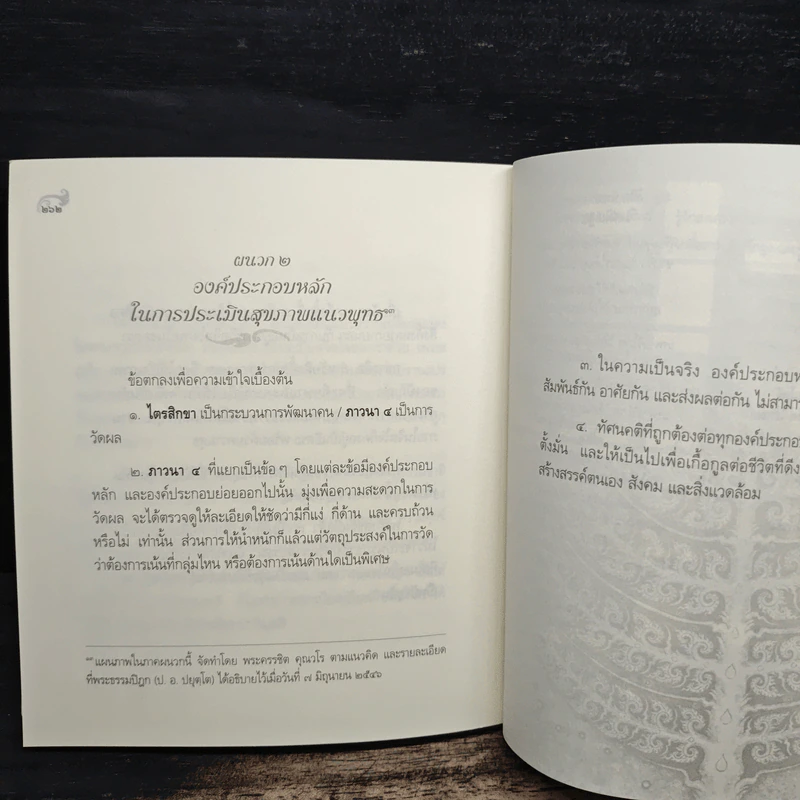 ๒๖๒
ผนวก ๒
องค์ประกอบหลัก
ในการประเมินสุขภาพแนวพุทธ๑๓
ข้อตกลงเพื่อความเข้าใจเบื้องต้น
๑. ไตรสิกขา เป็นกระบวนการพัฒนาคน / ภาวนา ๔ เป็นการ
วัดผล
๒. ภาวนา ๔ ที่แยกเป็นข้อๆ โดยแต่ละข้อมีองค์ประกอบ
หลัก และองค์ประกอบย่อยออกไปนั้น มุ่งเพื่อความสะดวกในการ
วัดผล จะได้ตรวจดูให้ละเอียดให้ชัดว่ามีกี่แง่ กี่ด้าน และครบถ้วน
หรือไม่ เท่านั้น ส่วนการให้น้ำหนักก็แล้วแต่วัตถุประสงค์ในการวัด
ว่าต้องการเน้นที่กลุ่มไหน หรือต้องการเน้นด้านใดเป็นพิเศษ
๑๓ แผนภาพในภาคผนวกนี้ จัดทำโดย พระครรชิต คุณวโร ตามแนวคิด และรายละเอียด
ที่พระธรรมปิฎก (ป. อ. ปยุตฺโต) ได้อธิบายไว้เมื่อวันที่ ๗ มิถุนายน ๒๕๔๖
๓. ในความเป็นจริง องค์ประกอบห
สัมพันธ์กัน อาศัยกัน และส่งผลต่อกัน ไม่สามาร
๔. ทัศนคติที่ถูกต้องต่อทุกองค์ประกอ
ตั้งมั่น และให้เป็นไปเพื่อเกื้อกูลต่อชีวิตที่ดีง
สร้างสรรค์ตนเอง สังคม และสิ่งแวดล้อม